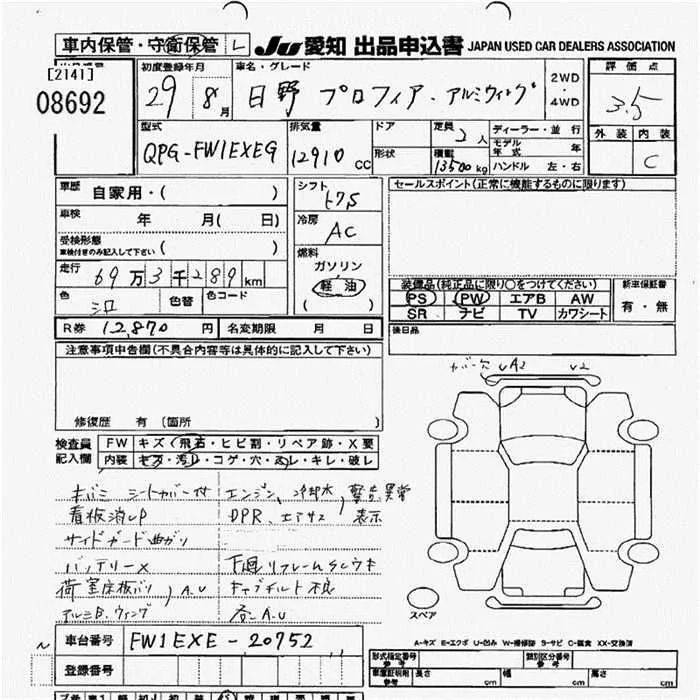 車内保管・守衛保管 L JU 愛知 出品申込書 JAPAN USED CAR DEALERS ASSOCIATION
[2141]
08692
初度登録年月 29 8月
車名・グレード 日野 プロフィア・アルミウィング
2WD
・
4WD
評価点
3.5
型式 QPG-FW1EXEG
排気量 12910 cc
ドア
形状
定員 2人
積載 13500kg
ディーラー・並行
モデル年式 年
ハンドル 左・右
外装 内装
C
車歴 自家用・( )
車検 年 月( 日)
受検形態
車検付きのみ記入して下さい ( )
走行 69万3千289km
色 シロ 色替 色コード
シフト
冷房 AC
燃料
ガソリン
軽油
( )
セールスポイント(正常に機能するものに限ります)
装備品(純正品に限り○をつけてください)
PS PW エアB AW
SR ナビ TV カワシート
新車保証書
有・無
R券 12,870円 名変期限 月 日
後日品
注意事項申告欄(不具合内容等は具体的に記入して下さい)
修復歴 有 (箇所
カバー欠 UA2 U2
検査員 FW キズ・飛石・ヒビ割・リペア跡・X要
記入欄 内装 キズ・汚レ・コゲ・穴・スレ・キレ・破レ
キバミ シートカバー付 エンジン、冷却水、警告異常
看板消しP DPR、エアサス 表示
サイドガード曲がり
バッテリーX 下廻りフレームSCウキ
荷室床板バリ、A.U キャブチルト不良
アルミB、ウィング 各A.U
スペア
A-キズ E-エクボ U-凹み W-補修跡 S-サビ C-腐食 XX-交換済
車台番号 FW1EXE-20752
登録番号
形式指定番号
参考
類別区分番号
参考
車庫証明用
参考
長さ cm 幅 cm 高さ cm